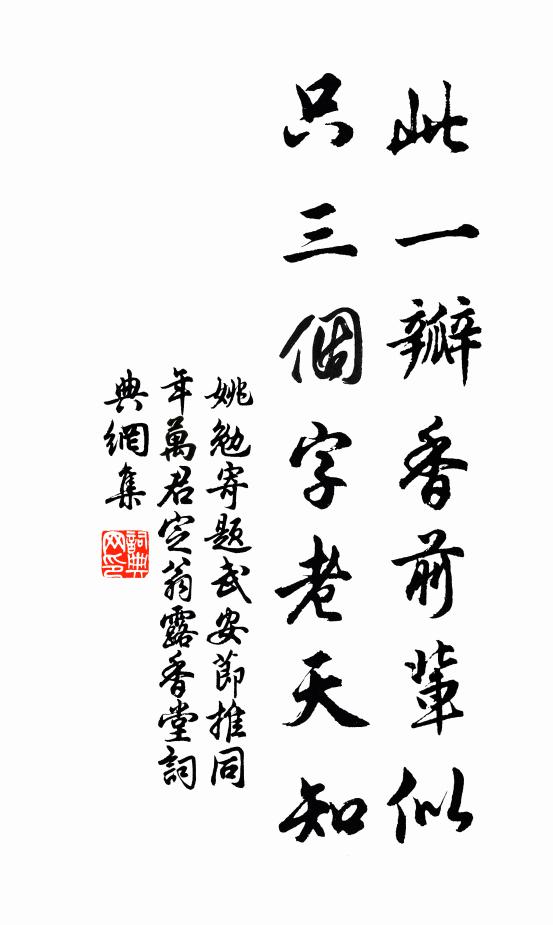 此一瓣香前輩似
只三個字老天知
姚勉寄題武安節推同
年萬君定翁露香堂詞
典網集
詞典网印